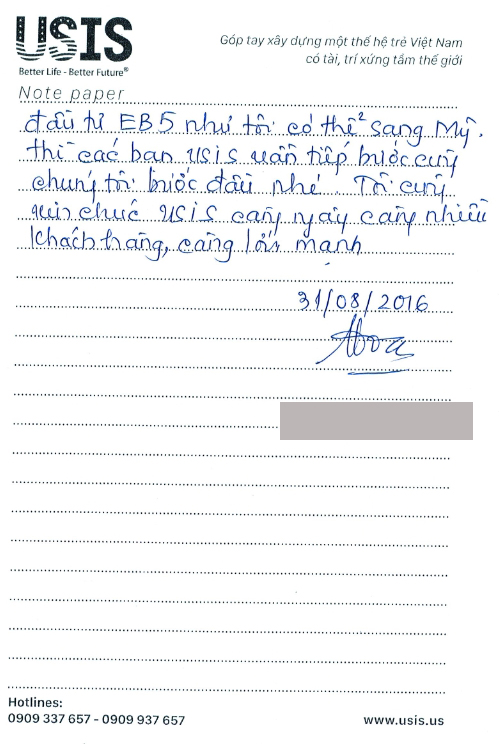 USIS
Better Life - Better Future®
Góp tay xây dựng một thế hệ trẻ Việt Nam
có tài, trí xứng tầm thế giới
Note paper
đầu tư EB5 như tôi có thể sang Mỹ.
thì các bạn USIS vẫn tiếp bước cùng
chúng tôi bước đầu nhé. Tôi cũng
xin chúc USIS càng ngày càng nhiều
khách hàng, càng lớn mạnh
31/08/2016
Hoa
Hotlines:
0909 337 657 - 0909 937 657
www.usis.us